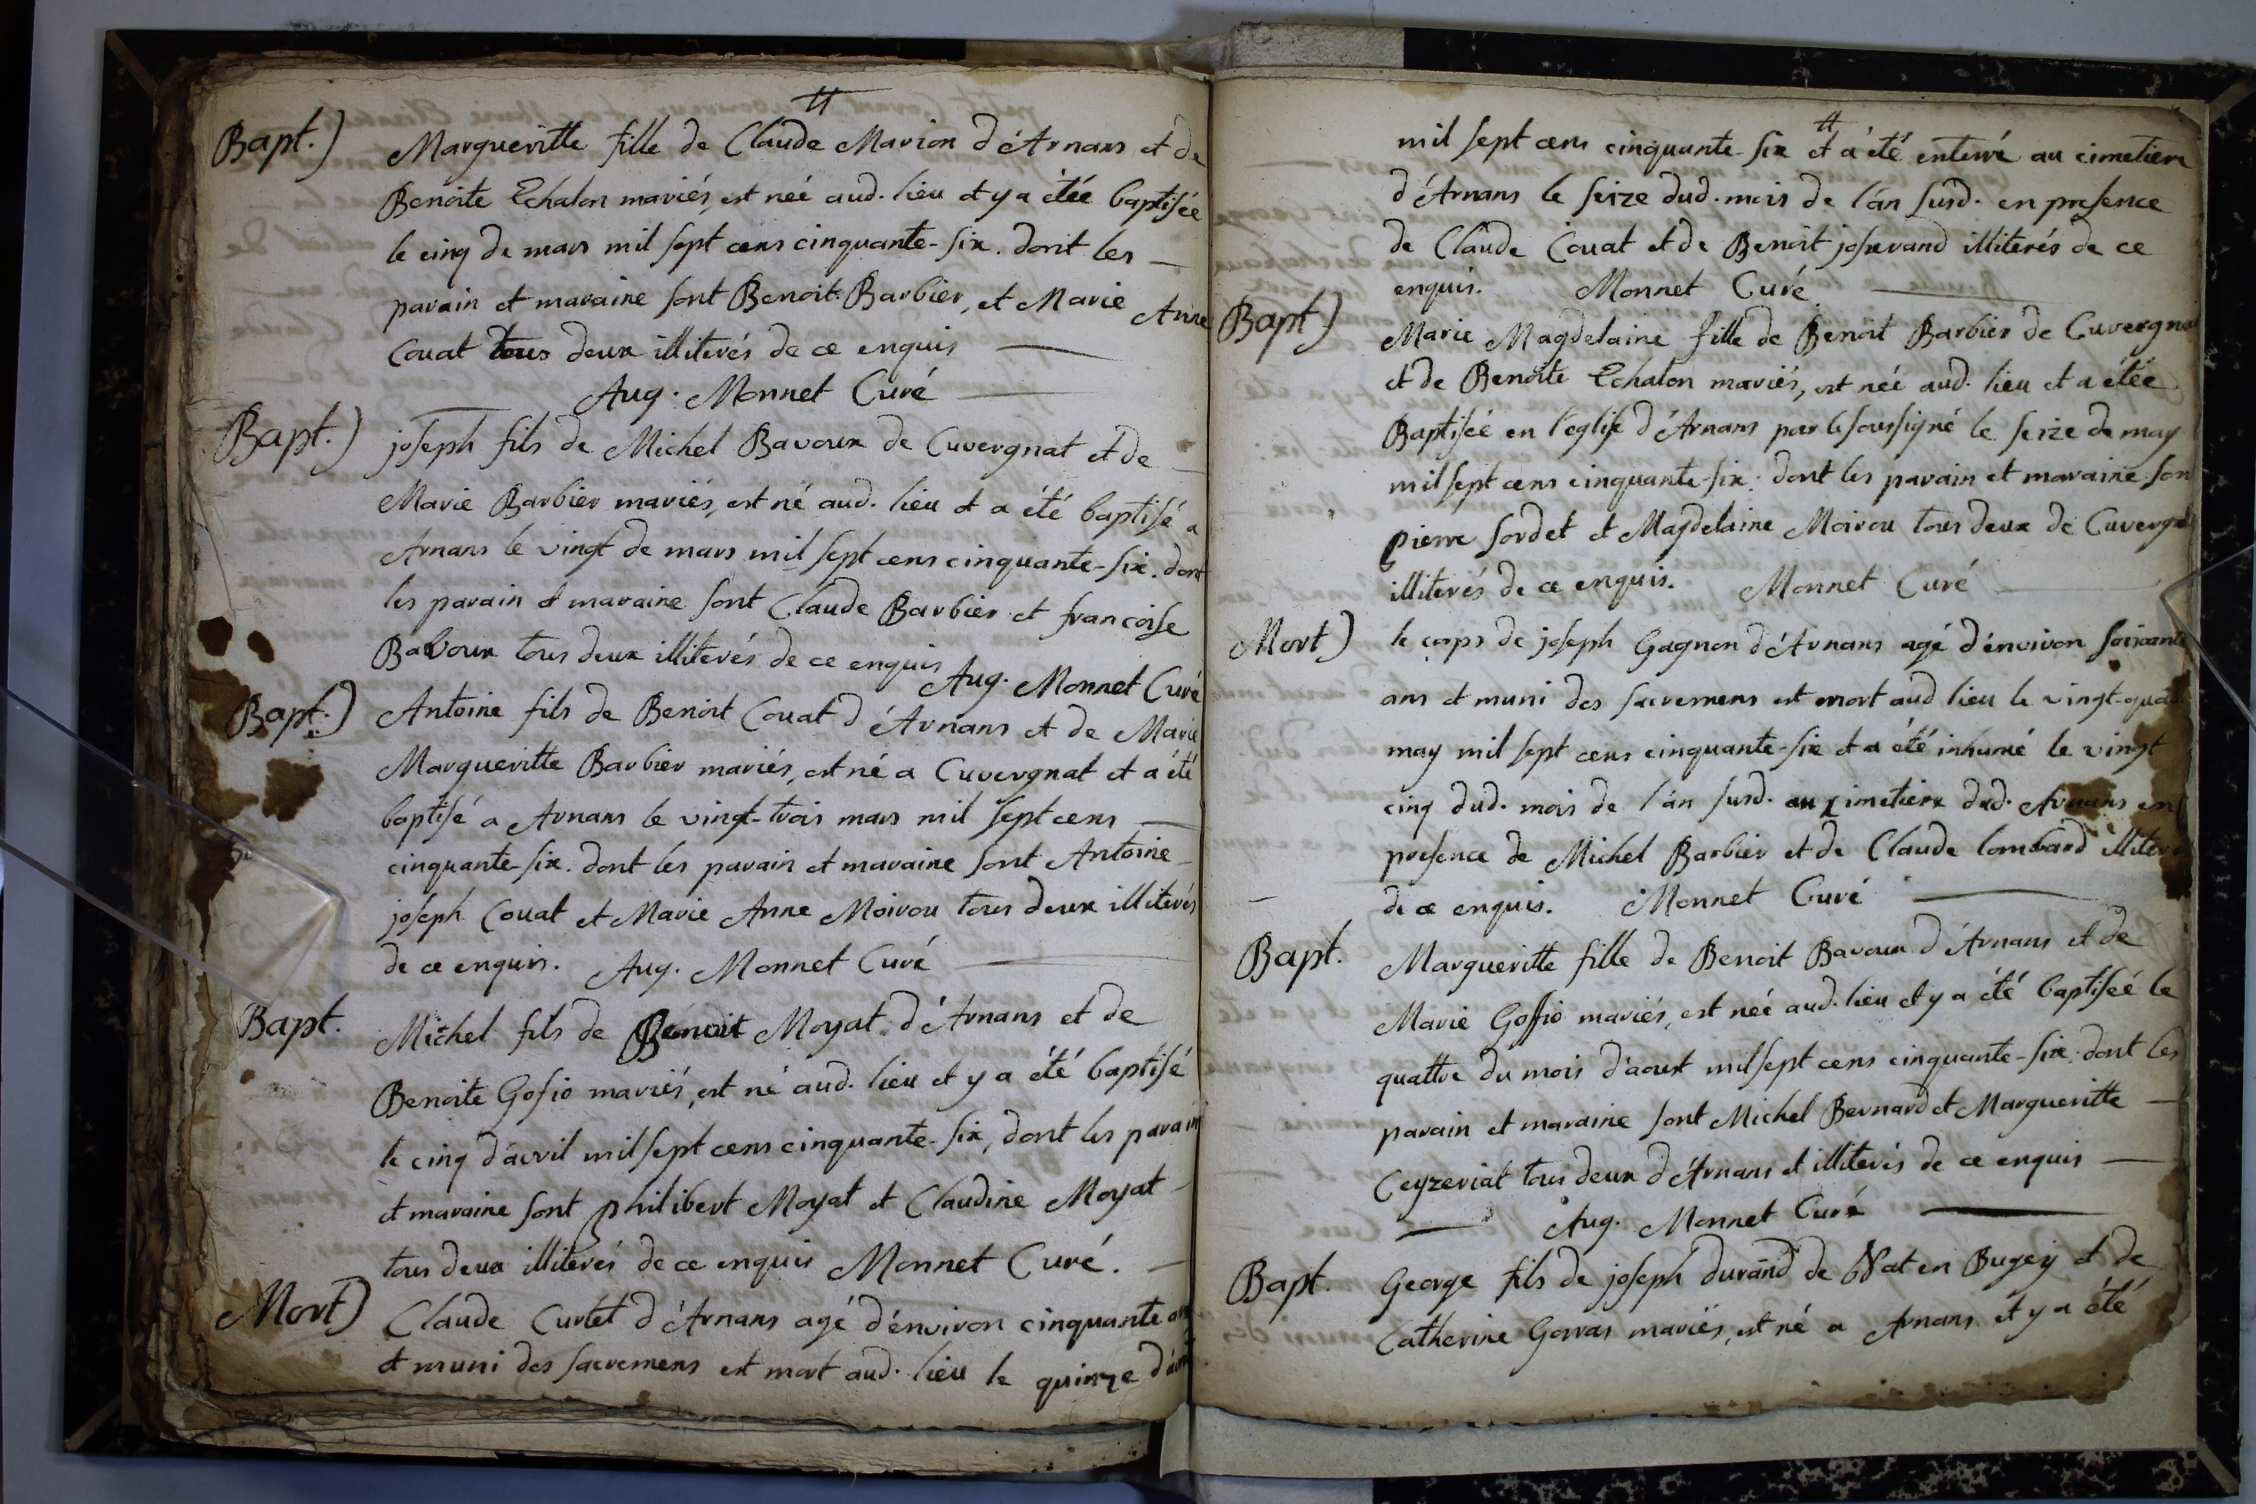 Bapt.) Margueritte fille de Claude Marion d'Arnans et de
Benoite Echalon mariés, est née aud. lieu et y a étée baptisée
le cinq de mars mil sept cens cinquante-six. dont les
parain et maraine sont Benoit Barbier, et Marie Anne
Couat tous deux illiterés de ce enquis
Aug. Monnet Curé
Bapt.) joseph fils de Michel Bavoux de Cuvergnat et de
Marie Barbier mariés, est né aud. lieu et a été baptisé a
Arnans le vingt de mars mil sept cens cinquante-six. dont
les parain et maraine sont Claude Barbier et francoise
Bavoux tous deux illiterés de ce enquis Aug. Monnet Curé
Bapt.) Antoine fils de Benoit Couat d'Arnans et de Marie
Margueritte Barbier mariés, est né a Cuvergnat et a été
baptisé a Arnans le vingt-trois mars mil sept cens
cinquante-six. dont les parain et maraine sont Antoine
joseph Couat et Marie Anne Moirou tous deux illiterés
de ce enquis. Aug. Monnet Curé
Bapt. Michel fils de Benoit Moyat d'Arnans et de
Benoite Gofio mariés, est né aud. lieu et y a été baptisé
le cinq d'avril mil sept cens cinquante-six, dont les parain
et maraine sont philibert Moyat et Claudine Moyat
tous deux illiterés de ce enquis Monnet Curé.
Mort) Claude Curtet d'Arnans agé d'énviron cinquante ans
et muni des sacremens est mort aud. lieu le quinze
mil sept cens cinquante-six et a été enterré au cimetiere
d'Arnans le seize dud. mois de l'án susd. en presence
de Claude Couat et de Benoit joserand illiterés de ce
enquis. Monnet Curé
Bapt) Marie Magdelaine fille de Benoit Barbier de Cuvergna
et de Benoite Echalon mariés, est née aud. lieu et a étée
Baptisée en l'eglise d'Arnans par le soussigné le seize de may
mil sept cens cinquante-six. dont les parain et maraine son
pierre sordet et Magdelaine Moirou tous deux de Cuvergn
illiterés de ce enquis. Monnet Curé
Mort) le corps de joseph Gagnon d'Arnans agé d'énviron soixante
ans et muni des sacremens est mort aud lieu le vingt-quat
may mil sept cens cinquante-six et a été inhumé le vingt
cinq dud. mois de l'án susd. au cimetiere dud. Arnans en
presence de Michel Barbier et de Claude lombard illiter
de ce enquis. Monnet Curé
Bapt. Margueritte fille de Benoit Bavoux d'Arnans et de
Marie Goffio mariés, est née aud. lieu et y a été baptisée le
quattre du mois d'áoust mil sept cens cinquante-six. dont les
parain et maraine sont Michel Bernard et Margueritte
Ceyzeriat tous deux d'Arnans et illiterés de ce enquis
Aug. Monnet Curé
Bapt. George fils de joseph durand de Nat en Bugey et de
Catherine Gorras mariés, est né a Arnans et y a été